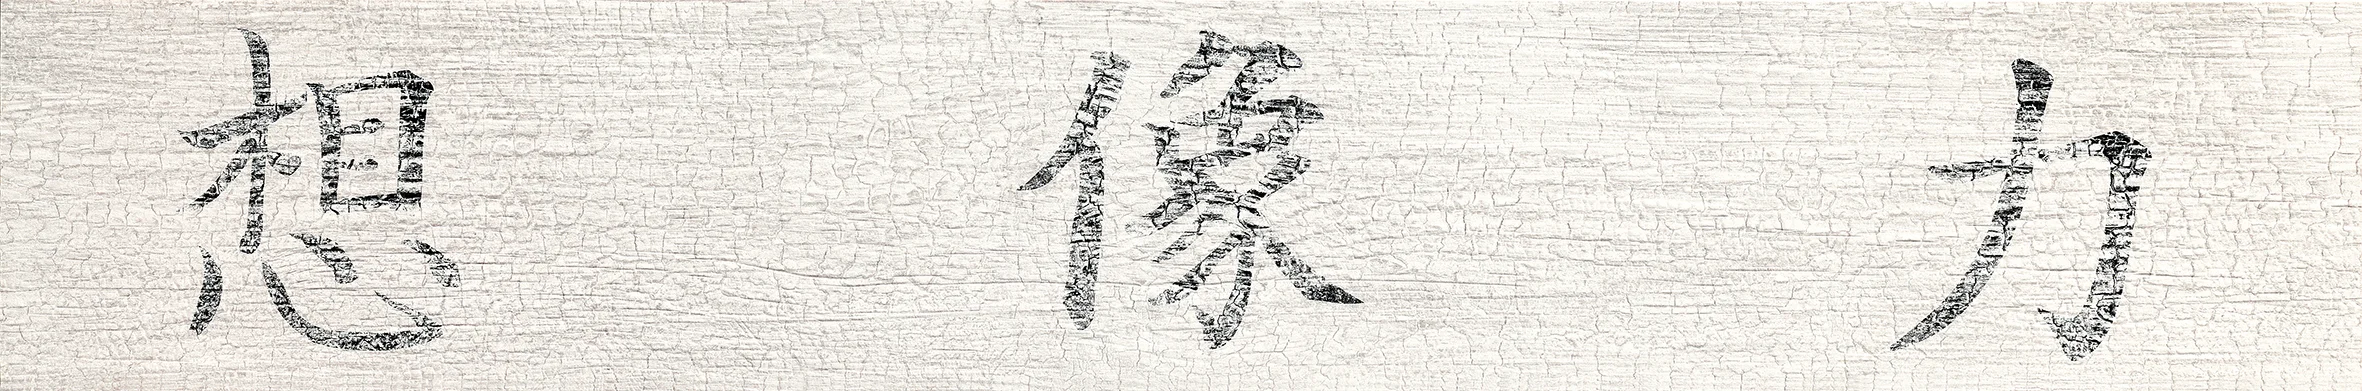 想像力